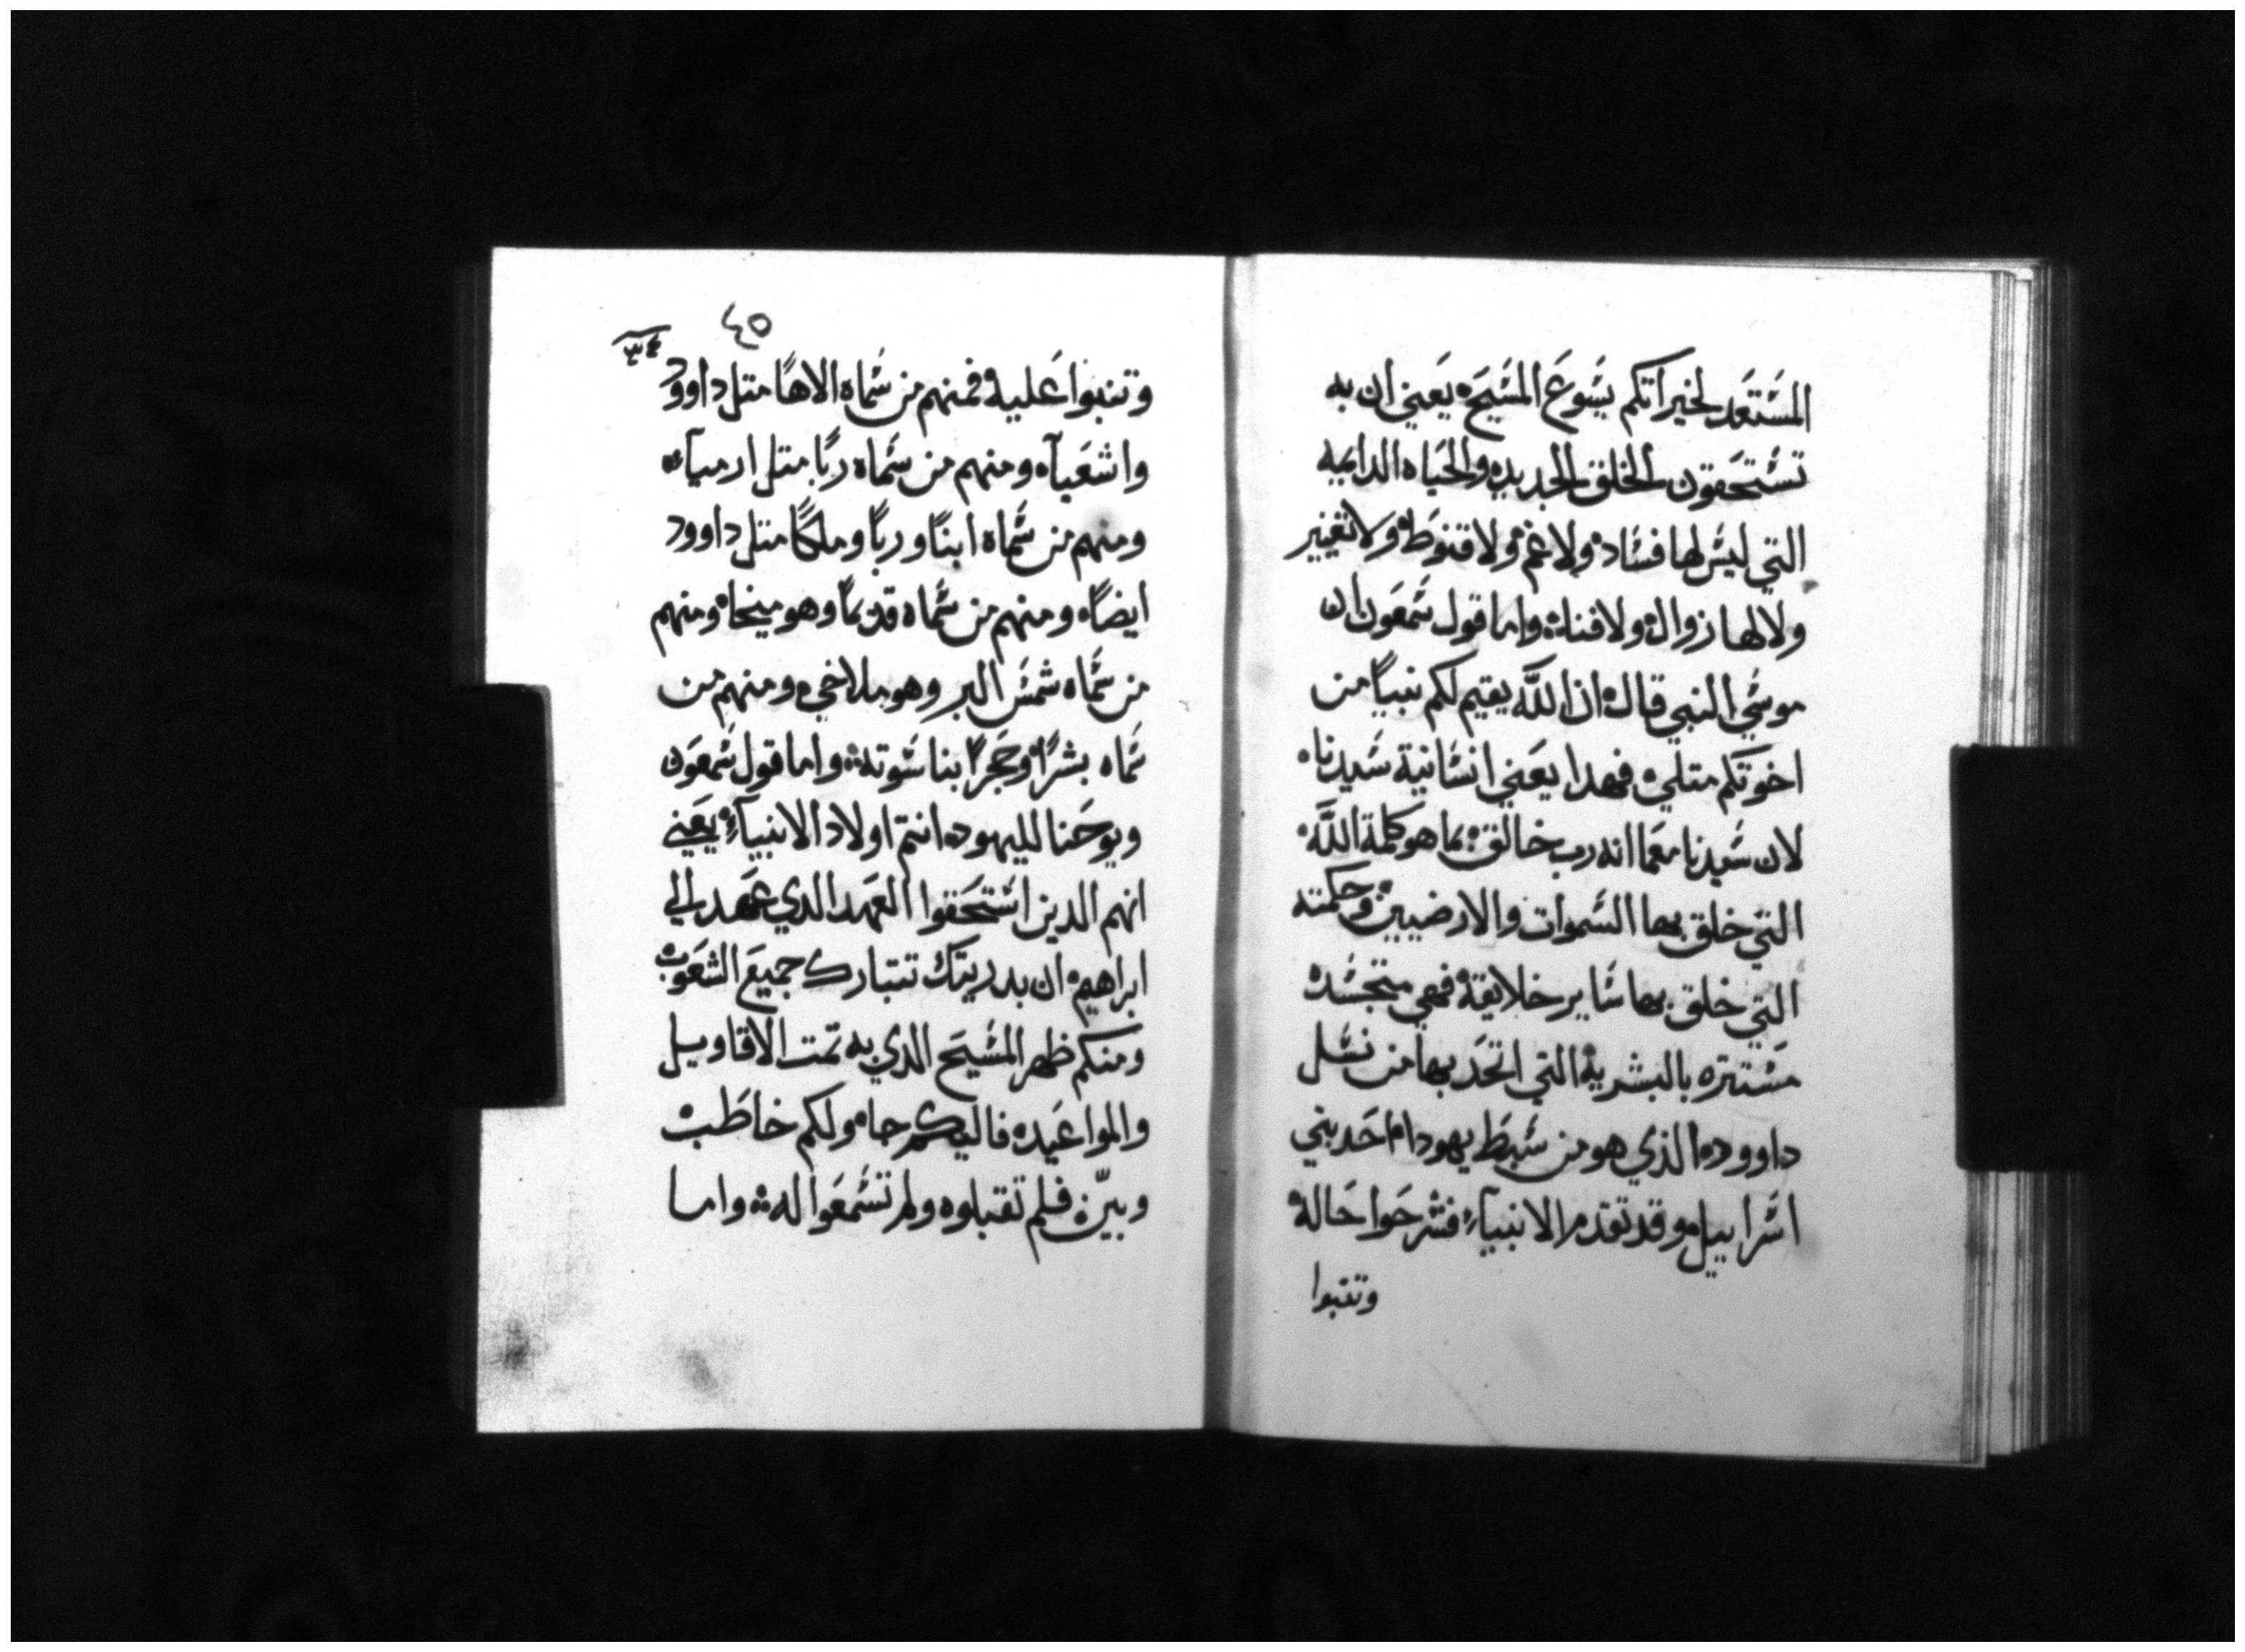 المستعد لخيراتكم يسوع المسيح يعني ان به
تستحقون الخلق الجديده والحياه الدايمه
التي ليس لها فساد ولا غم ولا قنوط ولا تغيير
ولا لها زوال ولا فناه واما قول شمعون ان
موسي النبي قال ان اللّه يقيم لكم نبياً من
اخوتكم متلي فهدا يعني انسانية سيدنا
لان سيدنا معما انه رب خالق بما هو كلمة اللّه
التي خلق بها السموات والارضيين وحكمته
التي خلق بها ساير خلايقه فهي متجسده
مستتره بالبشرية التي اتحد بها من نسل
داوود الذي هو من سبط يهودا احد بني
اسراييل وقد تقدم الانبيآء فشرحوا حاله
وتنبوا
٤٥
وتنبوا عليه فمنهم من سماه الاهاً متل داوود
واشعيآ ومنهم من سماه رباً متل ارميآء
ومنهم من سماه ابناً ورباً وملكاً متل داوود
ايضاً ومنهم من سماه قديماً وهو ميخا ومنهم
من سماه شمس البر وهو ملاخي ومنهم من
سماه بشراً وحجراً بناسوته واما قول شمعون
ويوحنا لليهود انتم اولاد الانبيآء يعني
انهم الدين استحقوا العهد الدي عهد الي
ابراهيم ان بدريتك تتبارك جميع الشعوب
ومنكم ظهر المسيح الدي به تمت الاقاويل
والمواعيد فاليكم جا ولكم خاطب
وبيّن فلم تقبلوه ولم تسمعوا له واما